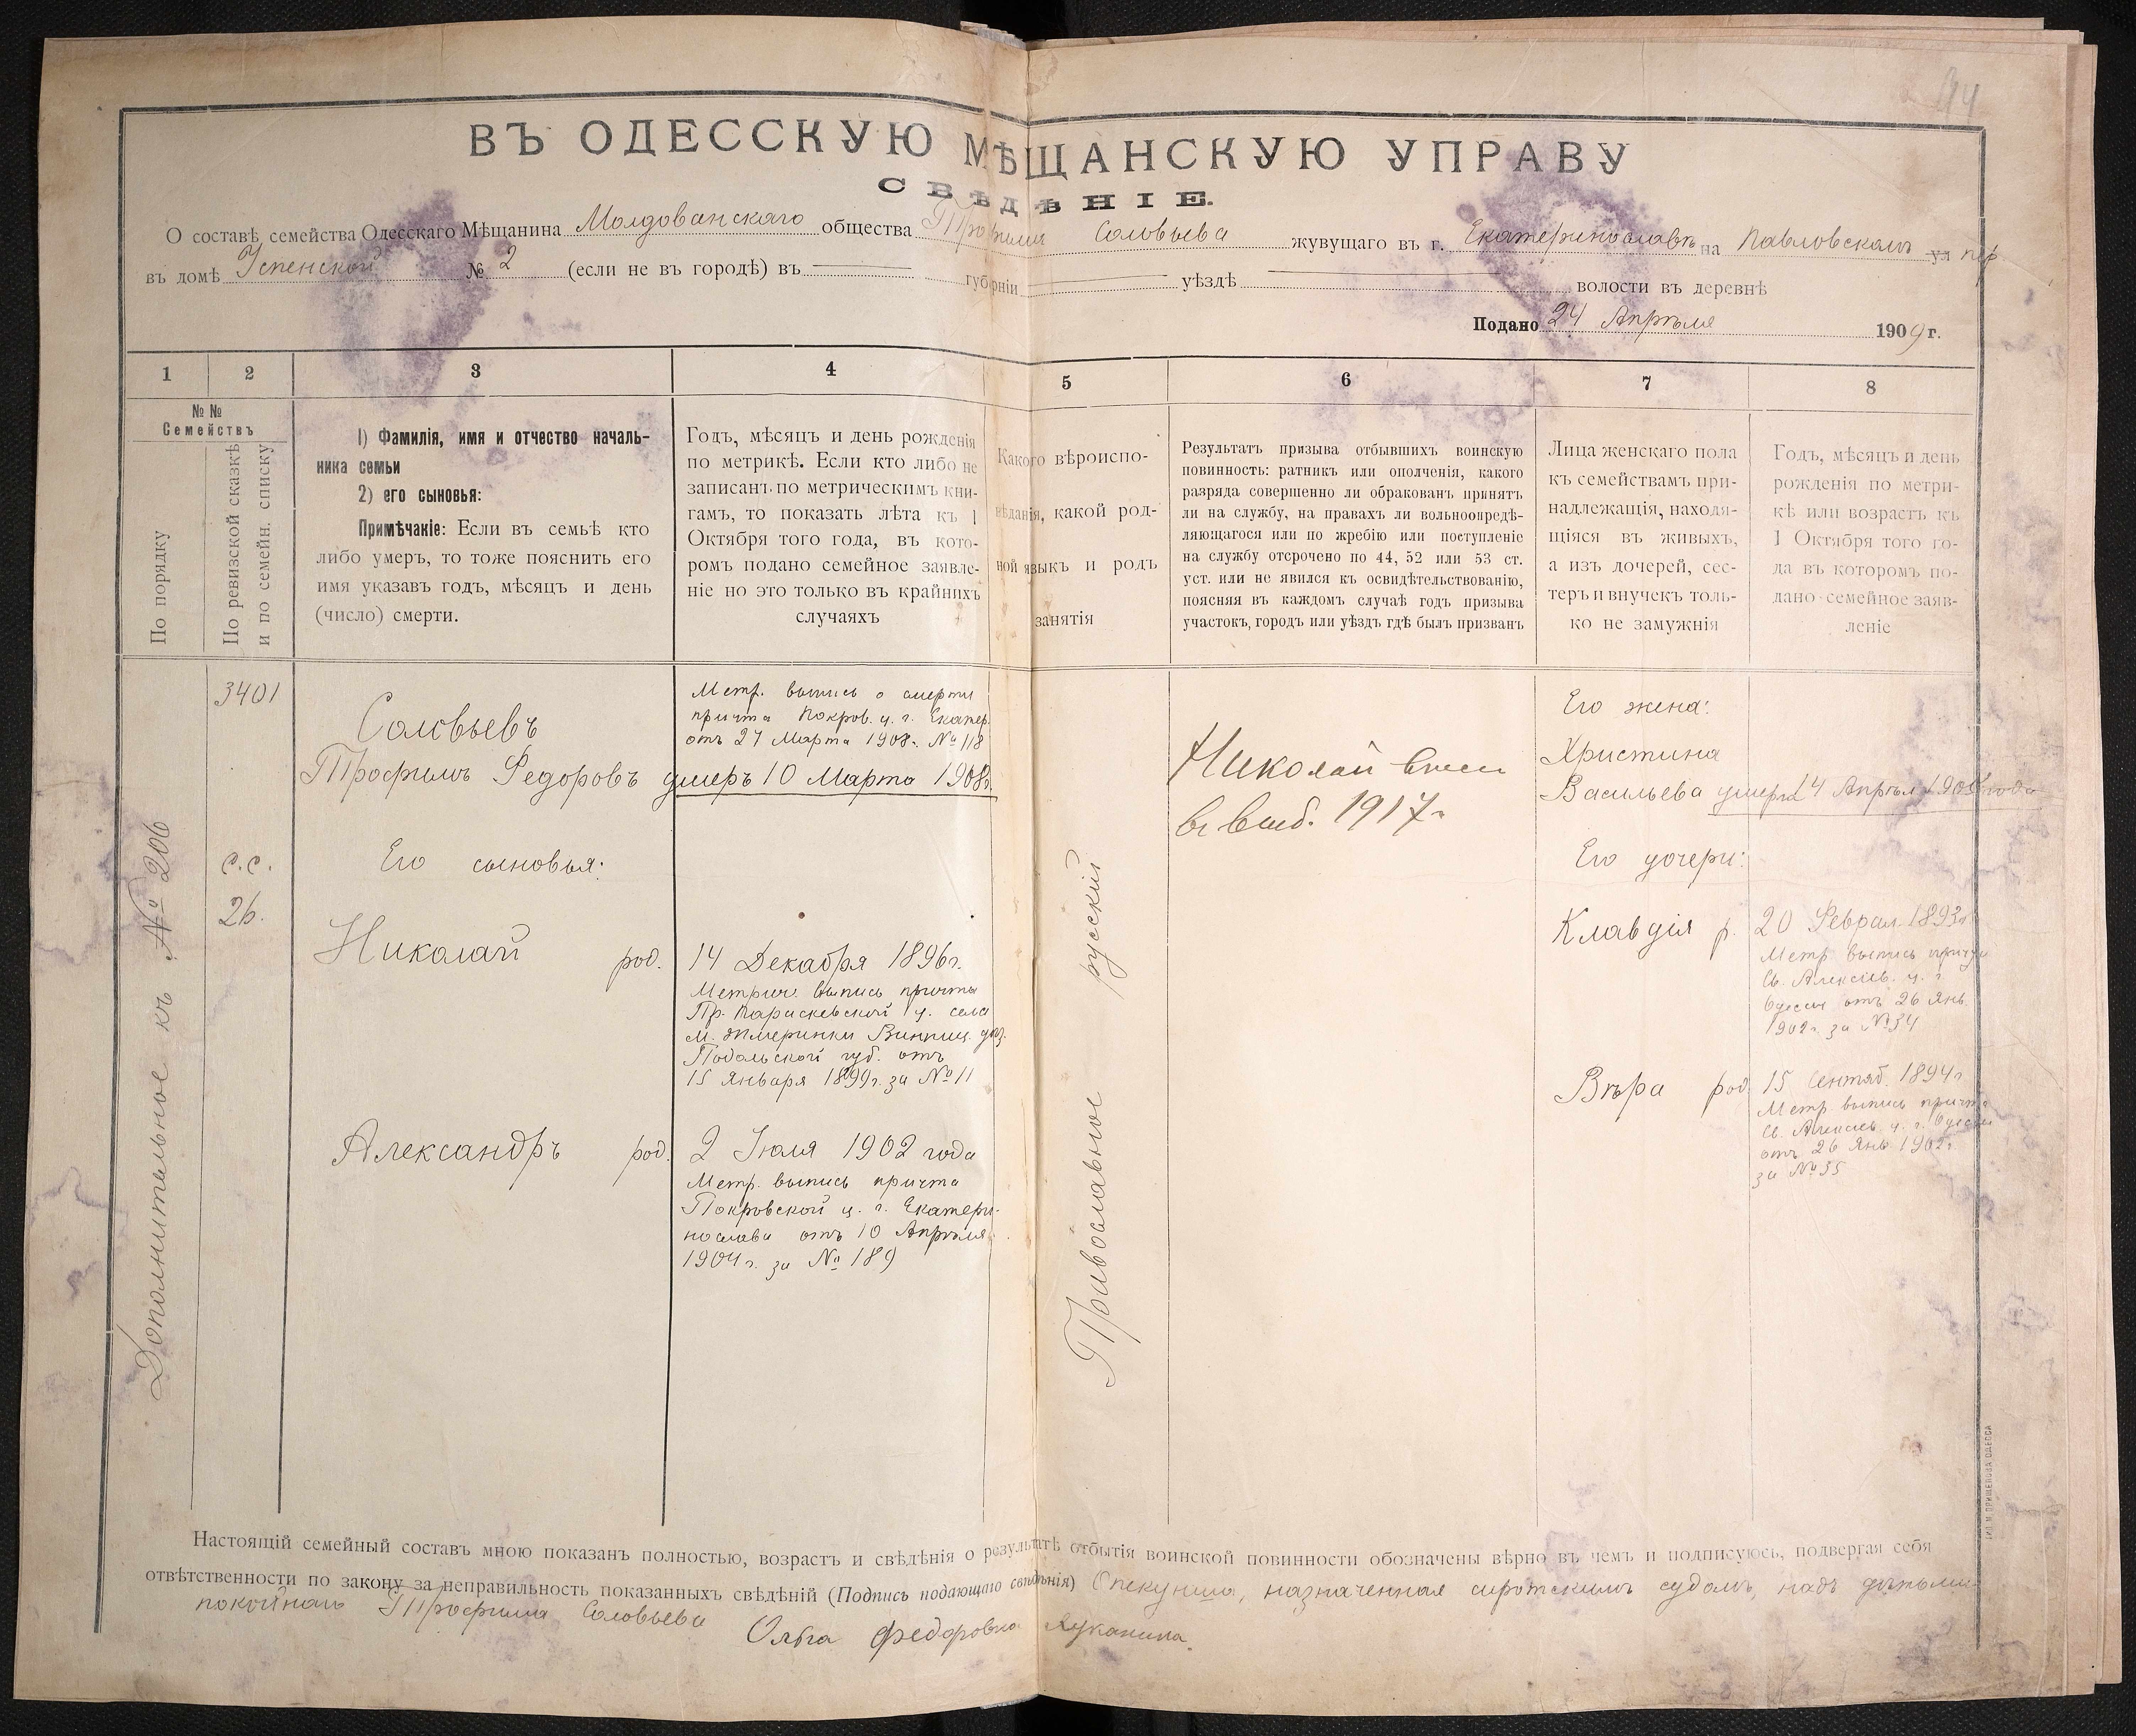 ВЪ ОДЕССКУЮ МѢЩАНСКУЮ УПРАВУ
СВѢДѢНІЕ.
О составѣ семейства Одесскаго Мѣщанина Молдованскаго общества Трофима Соловьева жувущаго въ г. Екатеринославѣ на Павловскомъ ул пер
въ домѣ Успенской № 2 (если не въ городѣ) въ губерніи уѣздѣ волости въ деревнѣ
Подано 24 Апрѣля 1909 г.
1 2 3 4 5 6 7 8
№ №
Семействъ
По порядку
По ревизской сказкѣ
и по семейн. списку
1) Фамилія, имя и отчество началь-
ника семьи
2) его сыновья:
Примѣчаніе: Если въ семьѣ кто
либо умеръ, то тоже пояснить его
имя указавъ годъ, мѣсяцъ и день
(число) смерти.
Годъ, мѣсяцъ и день рожденія
по метрикѣ. Если кто либо не
записанъ по метрическимъ кни-
гамъ, то показать лѣта къ 1
Октября того года, въ кото-
ромъ подано семейное заявле-
ніе но это только въ крайнихъ
случаяхъ
Какого вѣроиспо-
вѣданія, какой род-
ной языкъ и родъ
занятія
Результатъ призыва отбывшихъ воинскую
повинность: ратникъ или ополченія, какого
разряда совершенно ли обракованъ принятъ
ли на службу, на правахъ ли вольноопредѣ-
ляющагося или по жребію или поступленіе
на службу отсрочено по 44, 52 или 53 ст.
уст. или не явился къ освидѣтельствованію,
поясняя въ каждомъ случаѣ годъ призыва
участокъ, городъ или уѣздъ гдѣ былъ призванъ
Лица женскаго пола
къ семействамъ при-
надлежащія, находя-
щіяся въ живыхъ,
а изъ дочерей, сес-
теръ и внучекъ толь-
ко не замужнія
Годъ, мѣсяцъ и день
рожденія по метри-
кѣ или возрастъ къ
1 Октября того го-
да въ которомъ по-
дано семейное заяв-
леніе
Дополнительное къ № 206
3401
с.с.
26.
Соловьевъ
Трофимъ Федоровъ умеръ 10 Марта 1908г.
Его сыновья:
Николай род.
Александръ род.
Метр. выпись о смерти
причта Покров. ц. г. Екатер.
отъ 27 Марта 1908г. № 118
14 Декабря 1896г.
Метрич. выпись причта
Пр. Параскевской ц. села
м. Жмеринки Винниц. уѣз.
Подольской губ. отъ
15 Января 1899г. за № 11
2 Іюля 1902 года
Метр. выпись причта
Покровской ц. г. Екатери-
нослава отъ 10 Апрѣля
1904г. за № 189
Православное русский
Николай внесен
в 1917г
Его жена:
Христина
Васильева умерла 14 Апрѣл 1908 года
Его дочери:
Клавдія р.
20 Феврал. 1893г
Метр. выпись причта
Св. Алексіев. ц. г.
Одессы отъ 26 Янв.
1902г. за № 34
Вѣра род.
15 Сентяб. 1894г
Метр. выпись причта
Св. Алексіев. ц. г. Одессы
отъ 26 Янв. 1902г.
за № 35
Настоящій семейный составъ мною показанъ полностью, возрастъ и свѣдѣнія о результатѣ отбытія воинской повинности обозначены вѣрно въ чемъ и подписуюсь, подвергая себя
отвѣтственности по закону за неправильность показанныхъ свѣдѣній (Подпись подающаго свѣдѣнія) Опекунша, назначенная сиротскимъ судомъ, надъ дѣтьми
покойнаго Трофима Соловьева Ольга Федоровна Луканина.